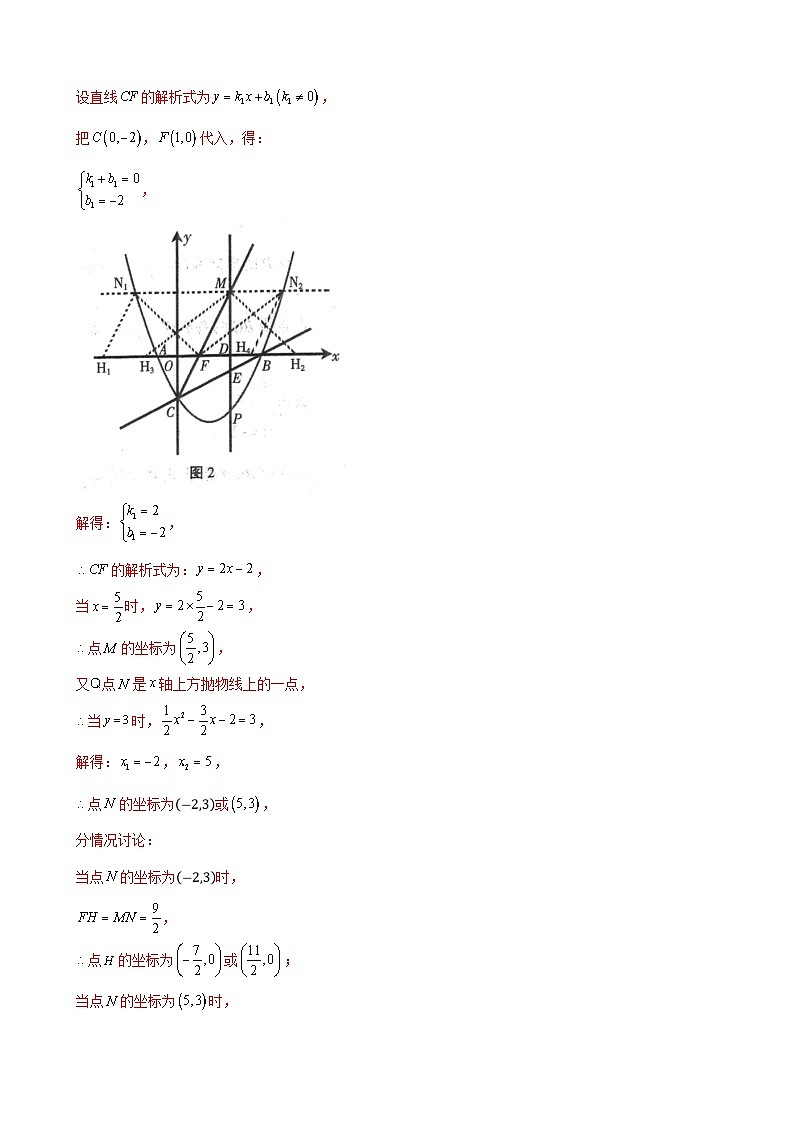 设直线CF的解析式为y=k₁x+b₁(k₁≠0),
把C(0,-2),F(1,0)代入,得:
{k₁+b₁=0
b₁=-2,
y
N₁ M N₂
A O F D H₄ B x
H₁ H₃ H₂
E
C
P
图2
解得:{k₁=2
b₁=-2,
∴CF的解析式为:y=2x-2,
当x=5/2时,y=2×5/2-2=3,
∴点M的坐标为(5/2,3),
又Q点N是x轴上方抛物线上的一点,
∴当y=3时,1/2x²-3/2x-2=3,
解得:x₁=-2,x₂=5,
∴点N的坐标为(−2,3)或(5,3),
分情况讨论:
当点N的坐标为(−2,3)时,
FH=MN=9/2,
∴点H的坐标为(-7/2,0)或(11/2,0);
当点N的坐标为(5,3)时,